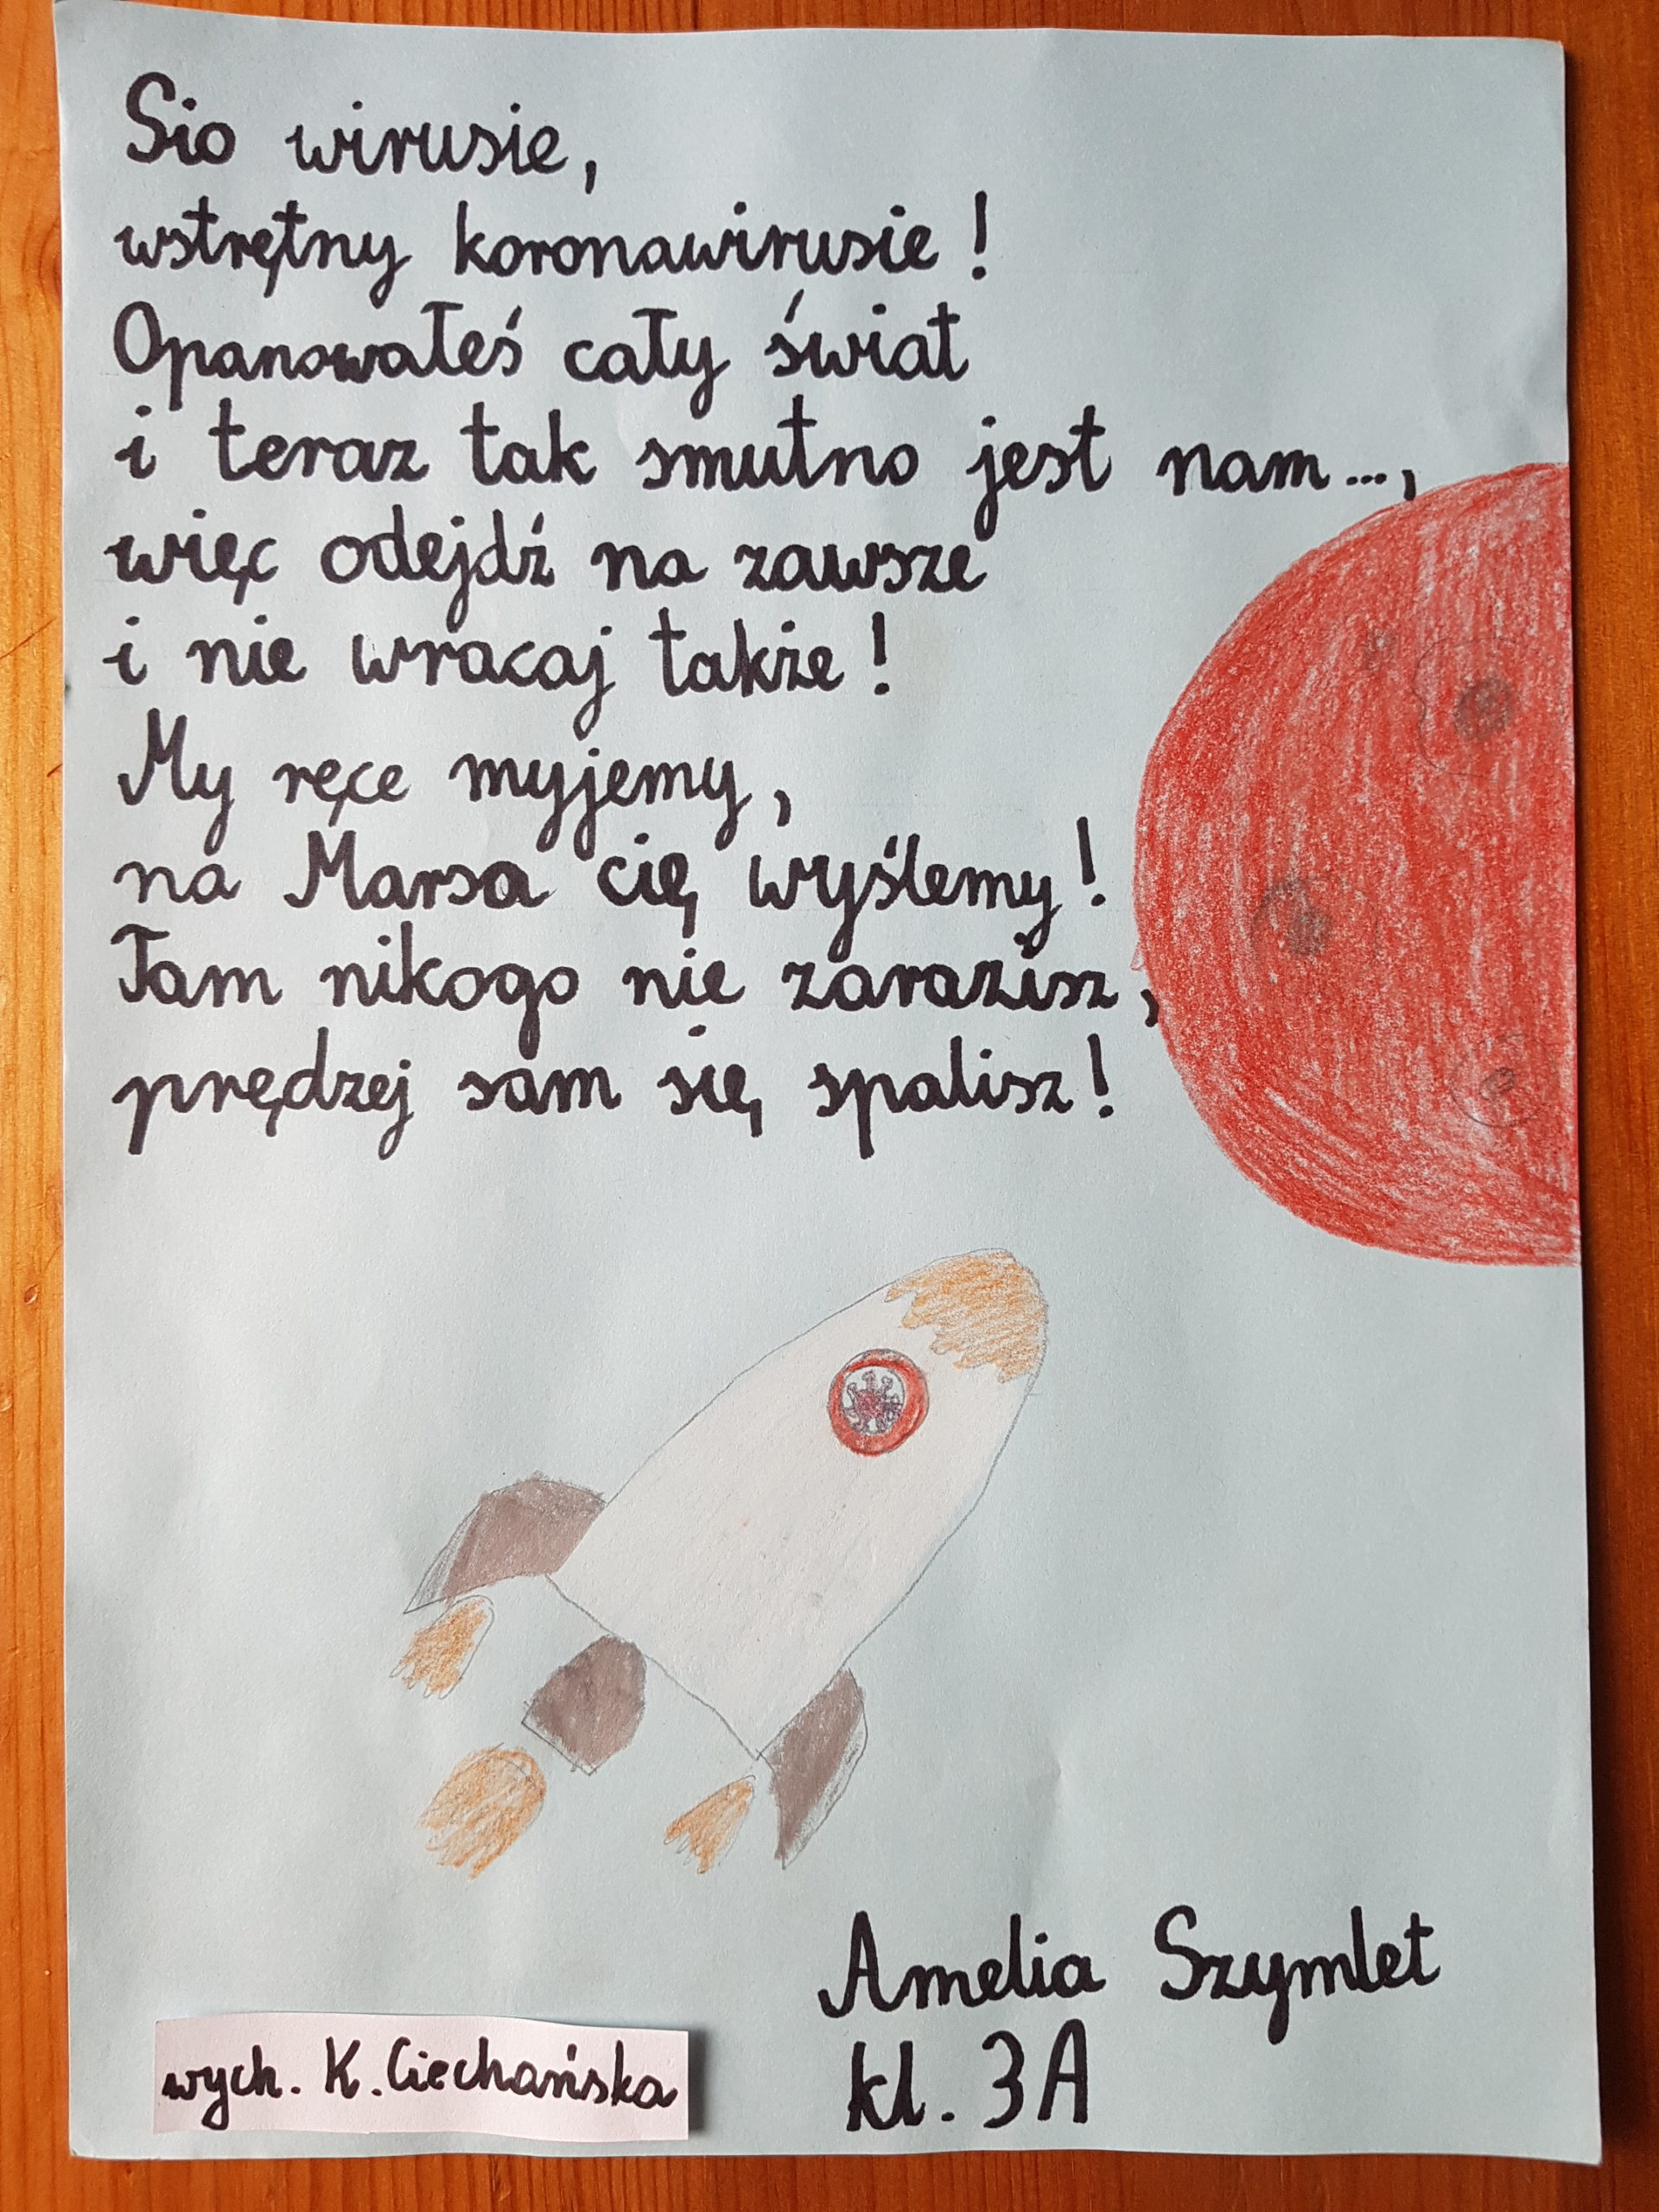 Sio wirusie,
wstrętny koronawirusie!
Opanowałeś cały świat
i teraz tak smutno jest nam...,
więc odejdź na zawsze
i nie wracaj także!
My ręce myjemy,
na Marsa cię wyślemy!
Tam nikogo nie zarazisz,
prędzej sam się spalisz!
Amelia Szymlet
kl. 3A
wych. K. Ciechańska